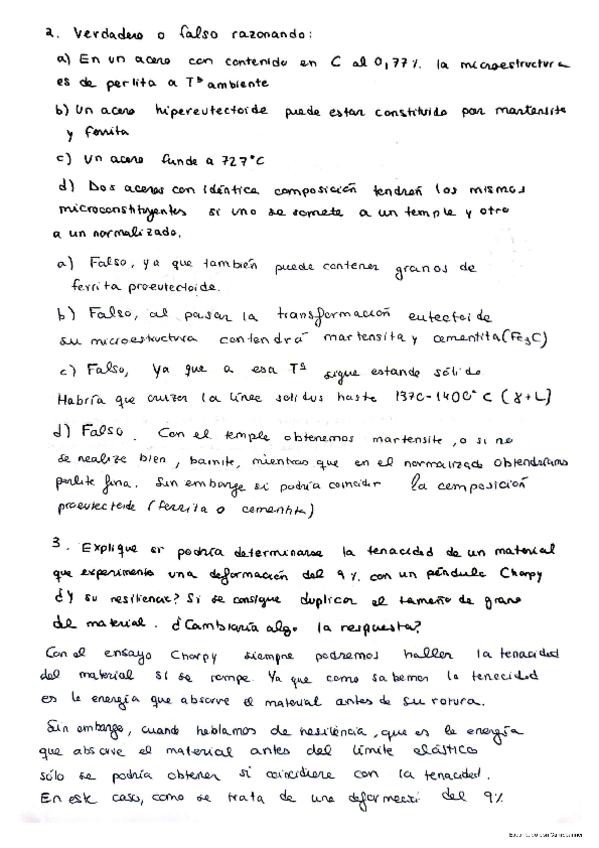 2. Verdadero o falso razonando:
a) En un acero con contenido en C al 0,77%. la microestructura
es de perlita a Tª ambiente
b) Un acero hipereutectoide puede estar constituido por martensita
y ferrita
c) Un acero funde a 727°C
d) Dos aceros con idéntica composición tendrán los mismos
microconstituyentes si uno se somete a un temple y otro
a un normalizado.
a) Falso, ya que también puede contener granos de
ferrita proeutectoide.
b) Falso, al pasar la transformación eutectoide
su microestructura contendrá martensita y cementita (Fe3C)
c) Falso, Ya que a esa Tª sigue estando sólido
Habría que cruzar la línea solidus hasta 1370-1400°C (γ+L)
d) Falso. Con el temple obtenemos martensita, o si no
se realiza bien, bainita, mientras que en el normalizado obtendríamos
perlita fina. Sin embargo si podría coincidir la composición
proeutectoide (ferrita o cementita)
3. Explique si podría determinarse la tenacidad de un material
que experimenta una deformación del 9% con un péndulo Charpy
¿Y su resiliencia? Si se consigue duplicar el tamaño de grano
del material. ¿Cambiaría algo la respuesta?
Con el ensayo Charpy siempre podremos hallar la tenacidad
del material si se rompe. Ya que como sabemos la tenacidad
es la energía que absorve el material antes de su rotura.
Sin embargo, cuando hablamos de resiliencia, que es la energía
que absorve el material antes del límite elástico
sólo se podría obtener si coincidiera con la tenacidad.
En este caso, como se trata de una deformació del 9%